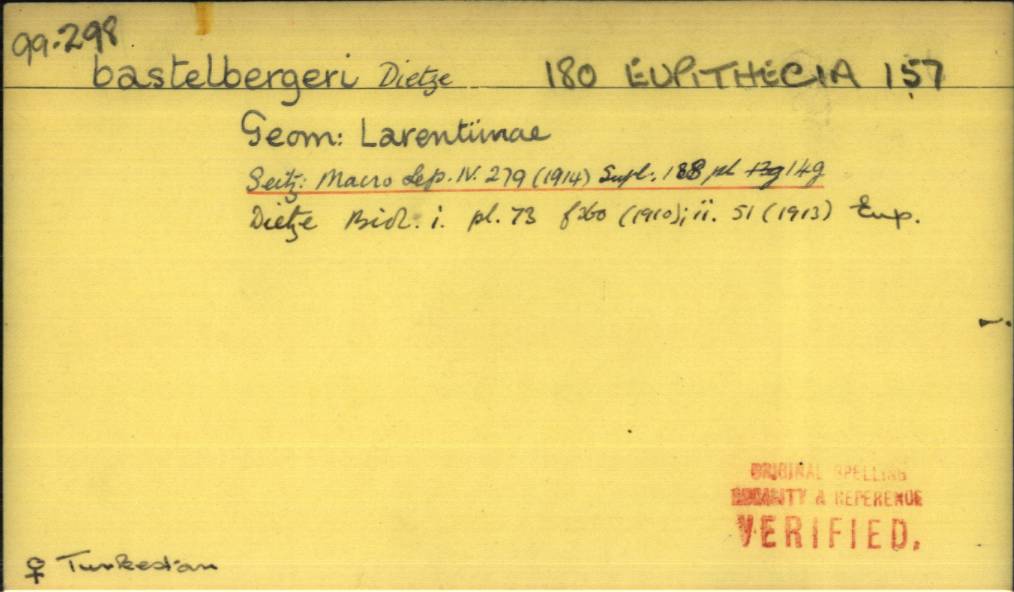 99.298
bastelbergeri Dietze 180 EUPITHECIA 157
Geom: Larentiinae
Seitz: Macro Lep. IV. 279 (1914) Supl. 188 pl 12g 14g
Dietze Biol. i. pl. 73 f 260 (1910); ii. 51 (1913) Eup.
ORIGINAL SPELLING
LOCALITY & REFERENCE
VERIFIED.
♀ Turkestan